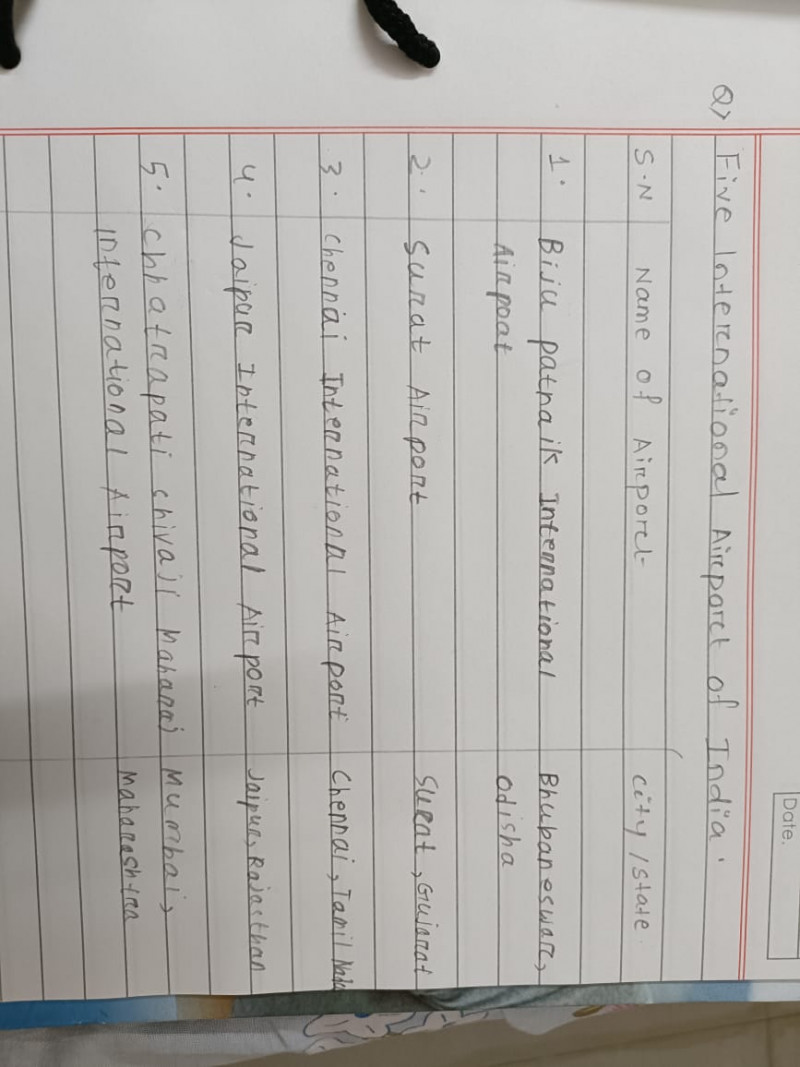 Date.
Q> Five International Airport of India.
S.N Name of Airport City/State
1. Biju patnaik International Bhubaneswar,
Airpoat odisha
2. Surat Airport Surat, Gujarat
3. Chennai International Airport Chennai, Tamil Nadu
4. Jaipur International Airport Jaipur, Rajasthan
5. Chhatrapati chivaji Maharaj Mumbai,
international Airport Maharashtra